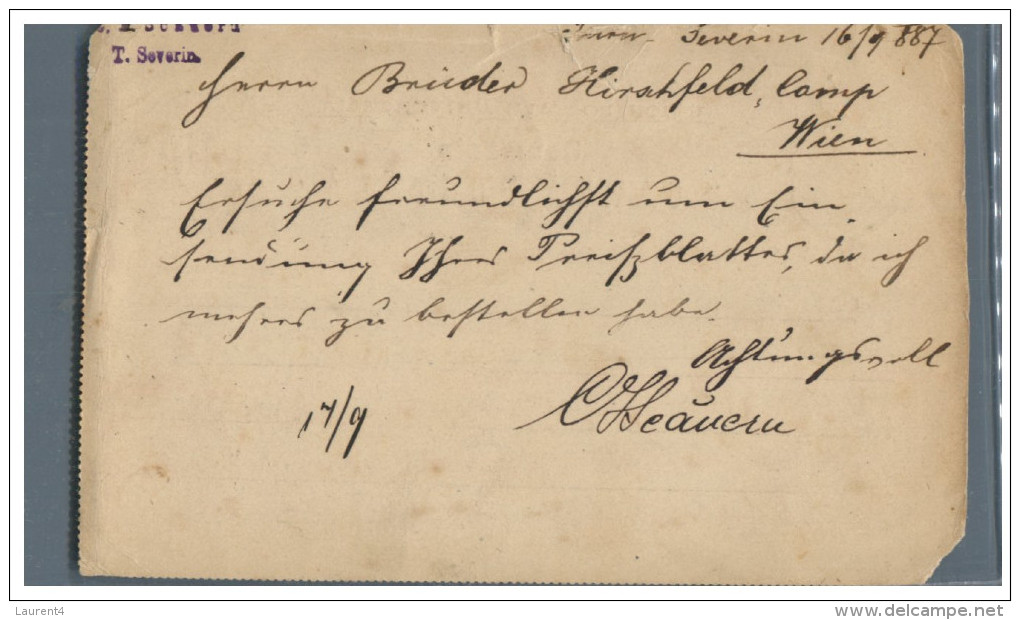 T. Severin.
Turn-Severin 16/9 887
Herrn Brüder Hirschfeld, Comp
Wien
Ersuche freundlichst um Ein
sendung Ihres Preißblattes, da ich
mehres zu bestellen habe.
Achtungsvoll
17/9
Laurent4
www.delcampe.net